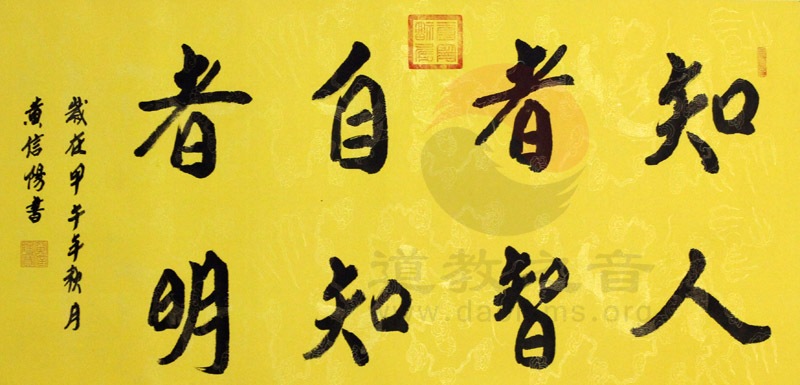 知人
者智
自知
者明
歲在甲午年秋月
黄信陽書
道教之音
www.daoisms.org